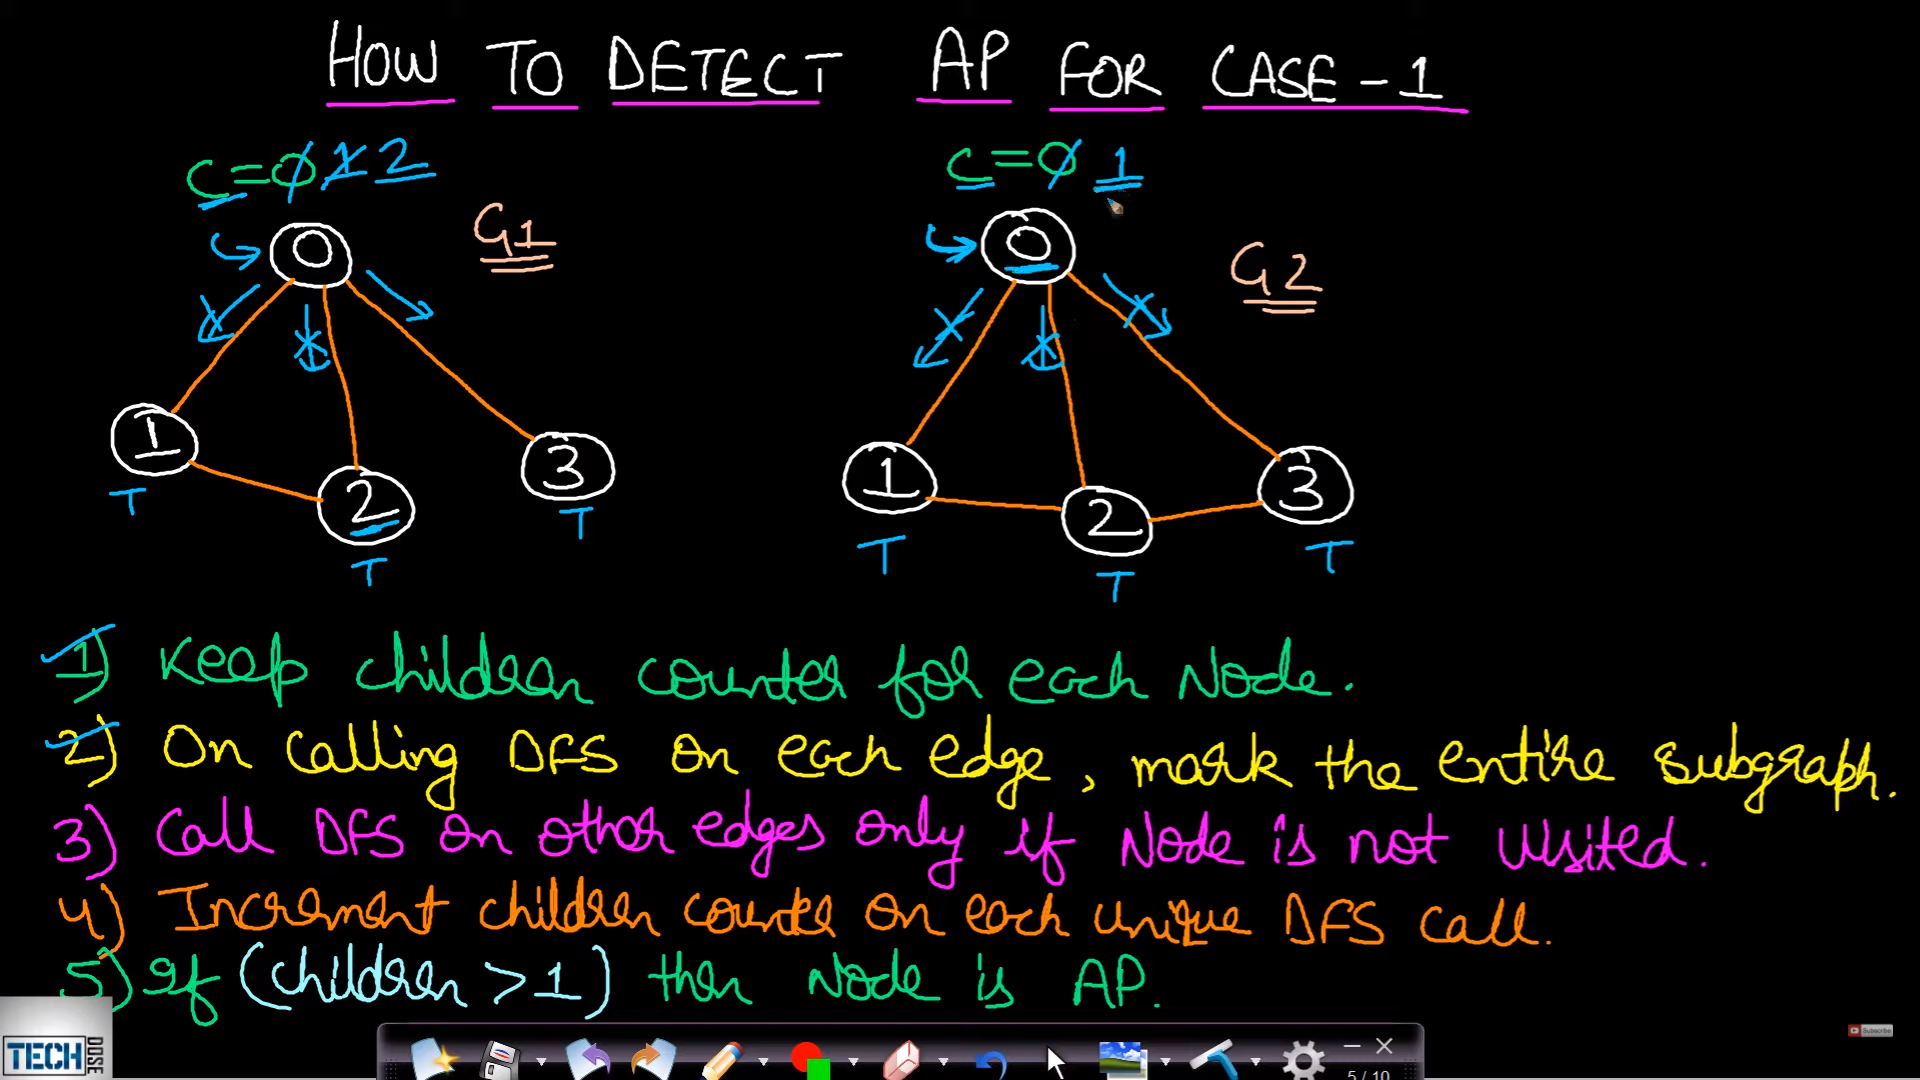 HOW TO DETECT AP FOR CASE-1
C=0 1 2
C=0 1
G1
G2
0
0
1
2
3
1
2
3
T
T
T
T
T
T
1) Keep children counter for each Node.
2) On calling DFS on each edge, mark the entire subgraph.
3) Call DFS on other edges only if Node is not visited.
4) Increment children counter on each unique DFS call.
5) If (children >1) then Node is AP.
TECH DOSE
Subscribe
5 / 10